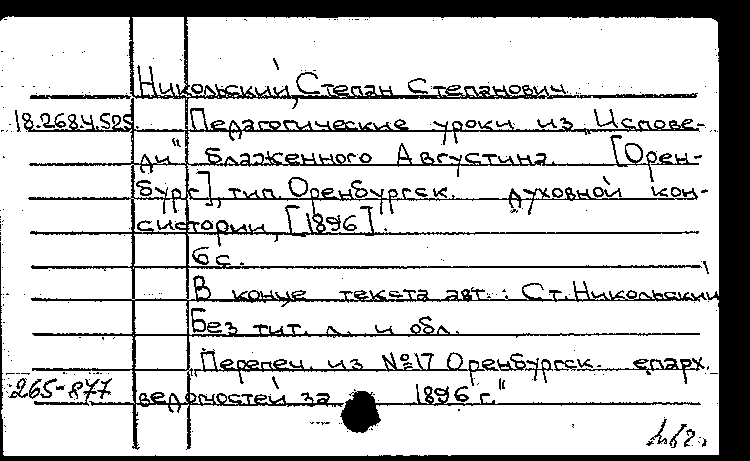 Никольский, Степан Степанович
18.268.4.525 Педагогические уроки из „Испове-
ди" блаженного Августина. [Орен-
бург], тип. Оренбургск. духовной кон-
систории, [1896].
6 с.
В конце текста авт.: Ст. Никольский
Без тит. л. и обл.
„Перепеч. из №17 Оренбургск. епарх.
265-877 ведомостей за 1896 г."